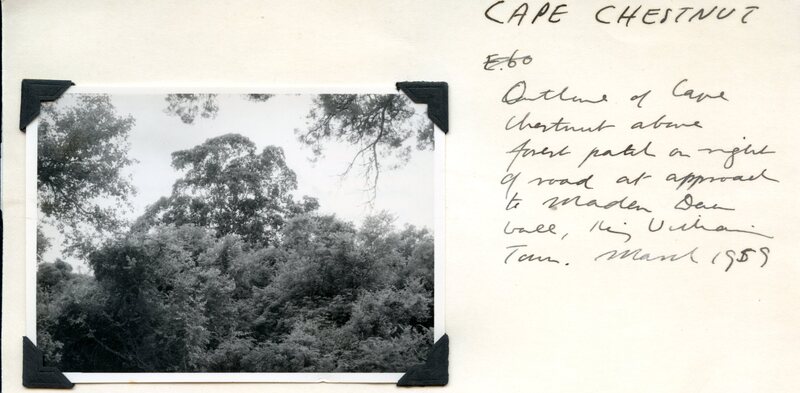 CAPE CHESTNUT
E.60
Outline of Cape
chestnut above
forest patch on right
of road at approach
to Maden Dam
wall, King William
Town. March 1959